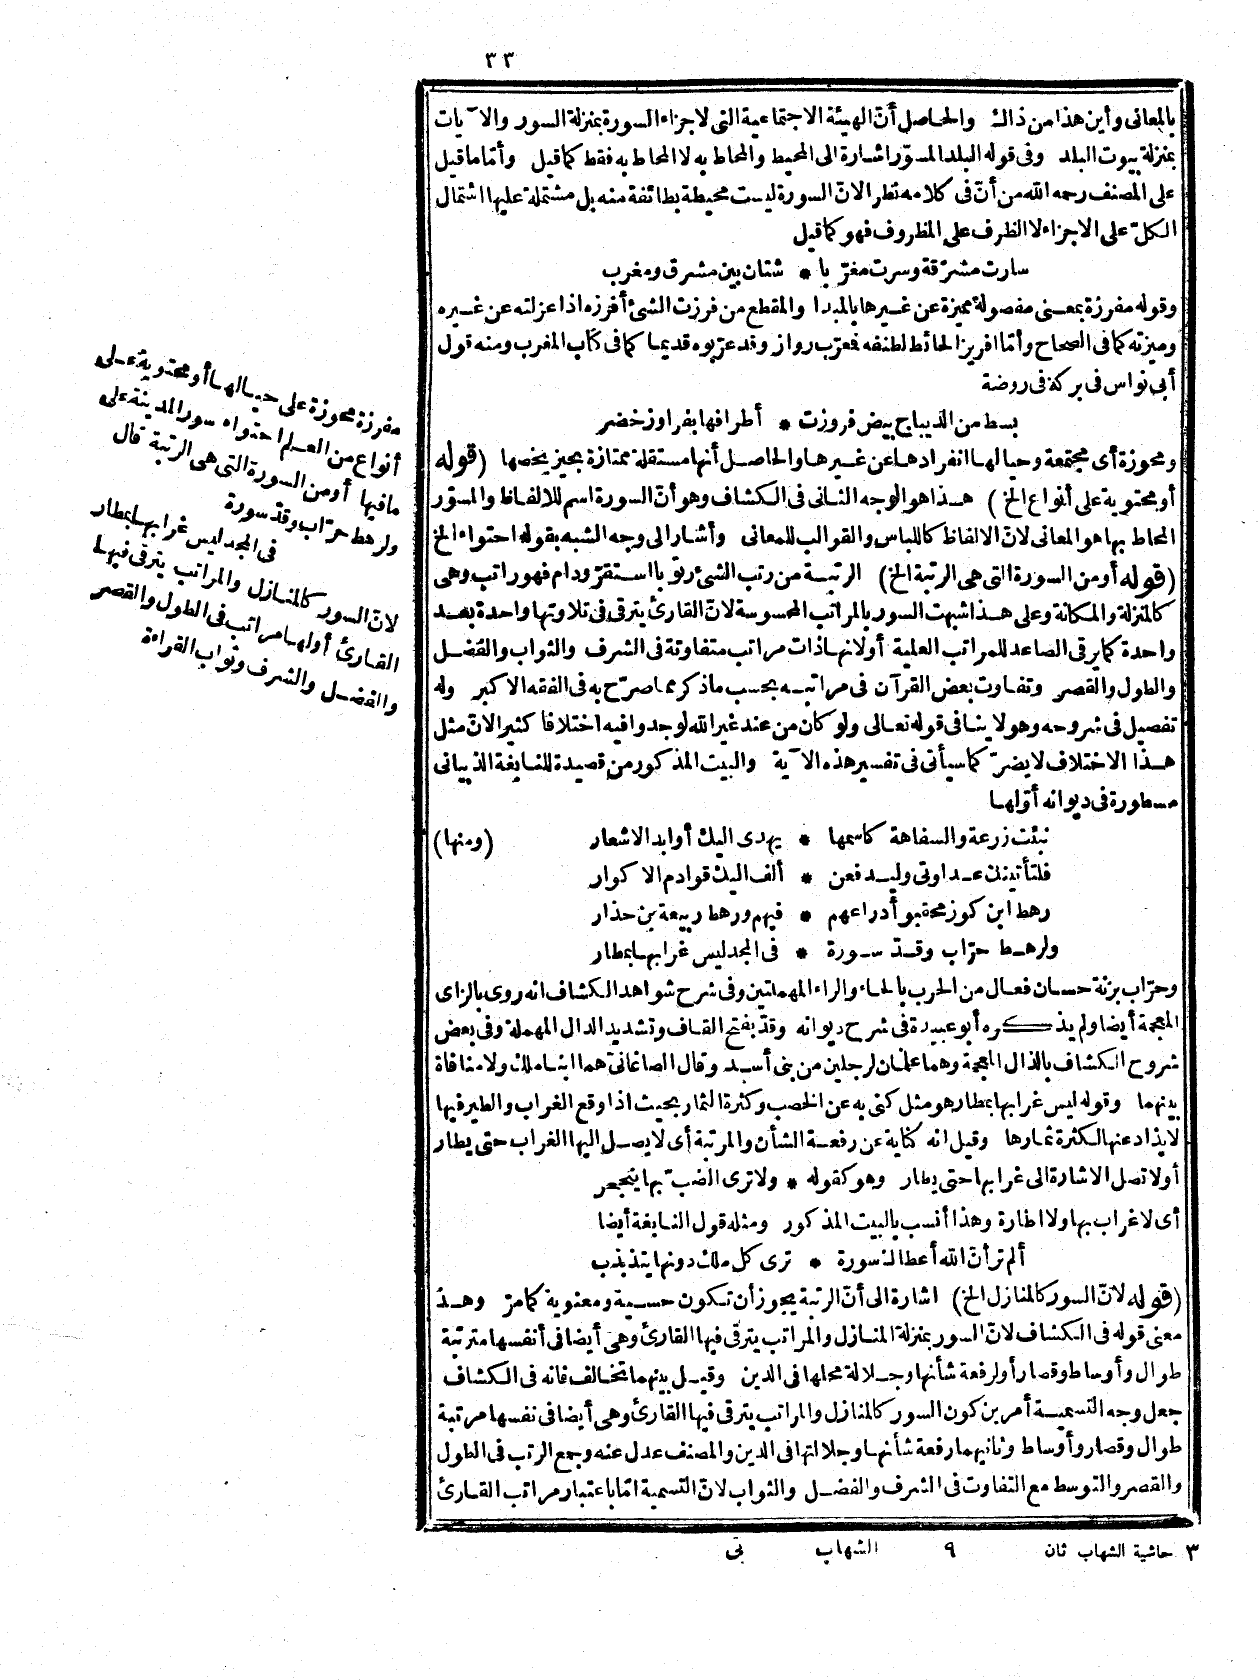 ٣٣
بالمعانى وأين هذا من ذاك والحاصل أنّ الهيئة الاجتماعية التى لاجزاء السورة بمنزلة السور والآيات
بمنزلة بيوت البلد وفى قوله البلد المسوّر اشارة الى المحيط والمحاط به لا المحاط به فقط كما قيل وأمّا ما قيل
على المصنف رحمه الله من أنّ فى كلامه نظر الانّ السورة ليست محيطة بطائفة منه بل مشتملة عليها اشتمال
الكلّ على الاجزاء لا الظرف على المظروف فهو كما قيل
سارت مشرّقة وسرت مغرّبا * شتان بين مشرق ومغرب
وقوله مفرزة بمعنى مفصولة مميزة عن غيرها بالمبدا والمقطع من فرزت الشئ أفرزه اذا عزلته عن غيره
وميزته كما فى الصحاح وأمّا افريز الحائط لطنفه فمعرّب رواز وقد عرّبوه قديما كما فى كتاب المغرب ومنه قول
أبى نواس فى بركة فى روضة
بسط من الديباج بيض فروزت * أطرافها بفراوز خضر
ومحوزة أى مجتمعة وحيالها انفرادها عن غيرها والحاصل أنها مستقلة ممتازة بحيز يخصها (قوله
أو محتوية على أنواع الخ) هذا هو الوجه الثانى فى الكشاف وهو أنّ السورة اسم للالفاظ والمسوّر
المحاط بها هو المعانى لانّ الالفاظ كاللباس والقوالب للمعانى وأشار الى وجه الشبه بقوله احتواء الخ
(قوله أو من السورة التى هى الرتبة الخ) الرتبة من رتب الشئ رتوبا استقرّ ودام فهو راتب وهى
كالمنزلة والمكانة وعلى هذا شبهت السور بالمراتب المحسوسة لانّ القارئ يترقى فى تلاوتها واحدة بعد
واحدة كما يرقى الصاعد للمراتب العلية أو لانها ذات مراتب متفاوتة فى الشرف والثواب والفضل
والطول والقصر وتفاوت بعض القرآن فى مراتبه بحسب ما ذكر مما صرّح به فى الفقه الاكبر وله
تفصيل فى شروحه وهو لا ينافى قوله تعالى ولو كان من عند غير الله لوجدوا فيه اختلافا كثيرا لانّ مثل
هذا الاختلاف لا يضرّ كما سيأتى فى تفسير هذه الآية والبيت المذكور من قصيدة للنابغة الذبيانى
مسطورة فى ديوانه أوّلها
نبئت زرعة والسفاهة كاسمها * يهدى اليك أوابد الاشعار (ومنها)
فلتأتينك عداوتى وليدفعن * ألف اليك قوادم الاكوار
رهط ابن كوز محقبو أدراعهم * فيهم ورهط ربيعة بن حذار
ولرهط حرّاب وقدّ سورة * فى المجد ليس غرابها بمطار
وحرّاب بزنة حسان فعال من الحرب بالحاء والراء المهملتين وفى شرح شواهد الكشاف انه روى بالزاى
المعجمة أيضا ولم يذكره أبو عبيدة فى شرح ديوانه وقدّ بفتح القاف وتشديد الدال المهملة وفى بعض
شروح الكشاف بالذال المعجمة وهما علمان لرجلين من بنى أسد وقال الصاغانىّ هما ابنا ملك ولا منافاة
بينهما وقوله ليس غرابها بمطار هو مثل كنى به عن الخصب وكثرة الثمار بحيث اذا وقع الغراب والطير فيها
لا يذاد عنها لكثرة ثمارها وقيل انه كناية عن رفعة الشأن والمرتبة أى لا يصل اليها الغراب حتى يطار
أو لا تصل الاشارة الى غرابها حتى يطار وهو كقوله * ولا ترى الضبّ بها ينجحر
أى لا غراب بها ولا اطارة وهذا أنسب بالبيت المذكور ومثله قول النابغة أيضا
ألم تر أنّ الله أعطاك سورة * ترى كل ملك دونها يتذبذب
(قوله لانّ السور كالمنازل الخ) اشارة الى أنّ الرتبة يجوز أن تكون حسية ومعنوية كما مرّ وهذ
معنى قوله فى الكشاف لانّ السور بمنزلة المنازل والمراتب يترقى فيها القارئ وهى أيضا فى أنفسها مترتبة
طوال وأوساط وقصار أو لرفعة شأنها وجلالة محلها فى الدين وقيل بينهما تخالف فانه فى الكشاف
جعل وجه التسمية أمرين كون السور كالمنازل والمراتب يترقى فيها القارئ وهى أيضا فى نفسها مرتبة
طوال وقصار وأوساط وثانيهما رفعة شأنها وجلالتها فى الدين والمصنف عدل عنه وجمع الرتب فى الطول
والقصر والتوسط مع التفاوت فى الشرف والفضل والثواب لانّ التسمية امّا باعتبار مراتب القارئ
مفرزة محوزة على حيالها أو محتوية على
أنواع من العلم احتواء سور المدينة على
ما فيها أو من السورة التى هى الرتبة قال
ولرهط حرّاب وقدّ سورة
فى المجد ليس غرابها بمطار
لانّ السور كالمنازل والمراتب يترقى فيها
القارئ أو لها مراتب فى الطول والقصر
والفضل والشرف وثواب القراءة
٣ حاشية الشهاب ثان ٩ الشهاب نى